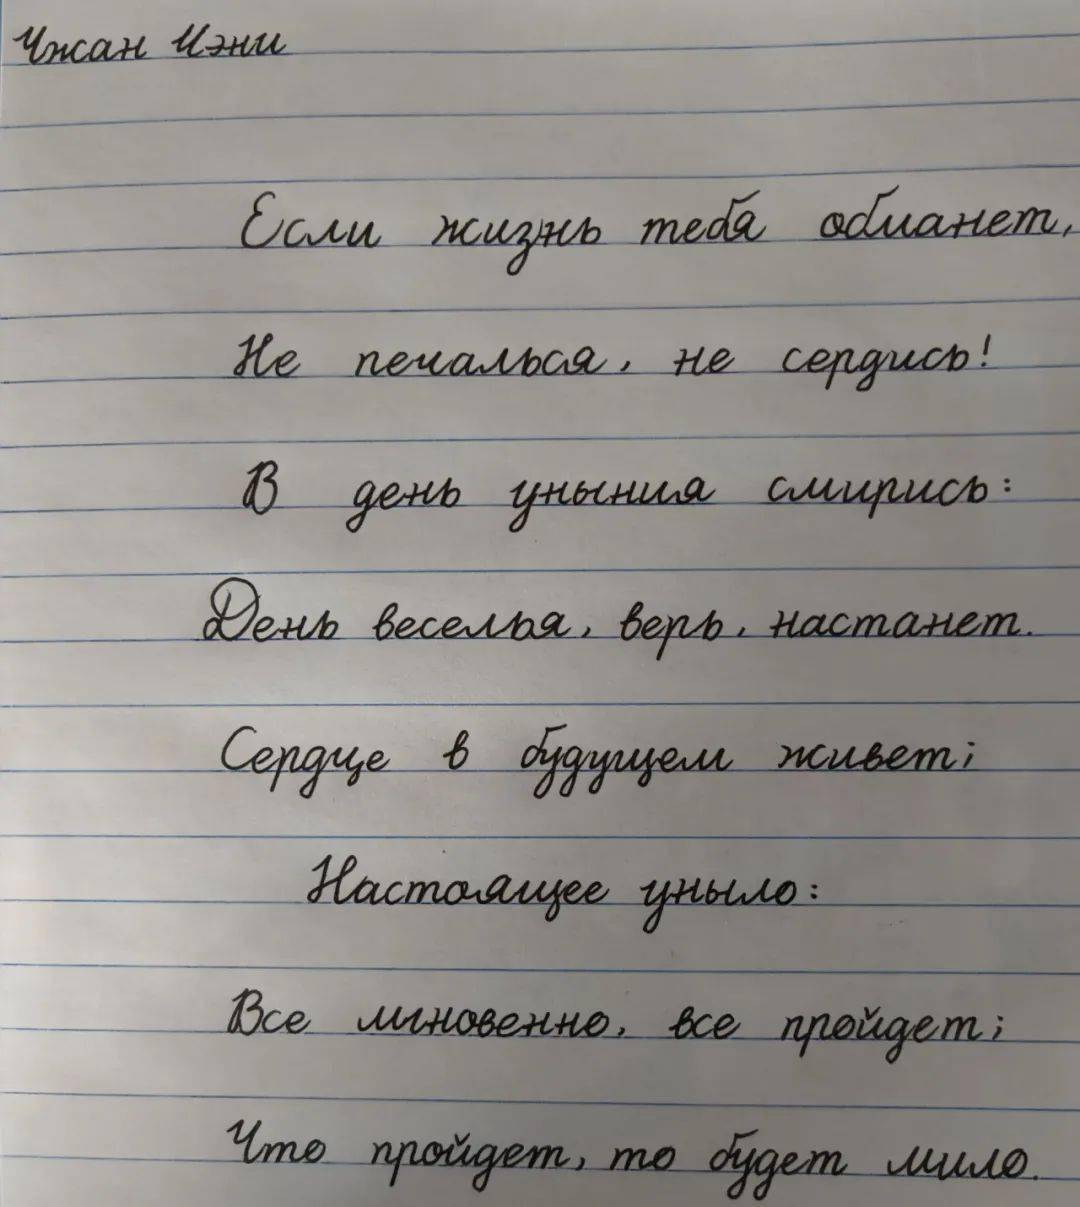 Чжан Иэни
Если жизнь тебя обманет,
Не печалься, не сердись!
В день уныния смирись:
День веселья, верь, настанет.
Сердце в будущем живет;
Настоящее уныло:
Все мгновенно, все пройдет;
Что пройдет, то будет мило.